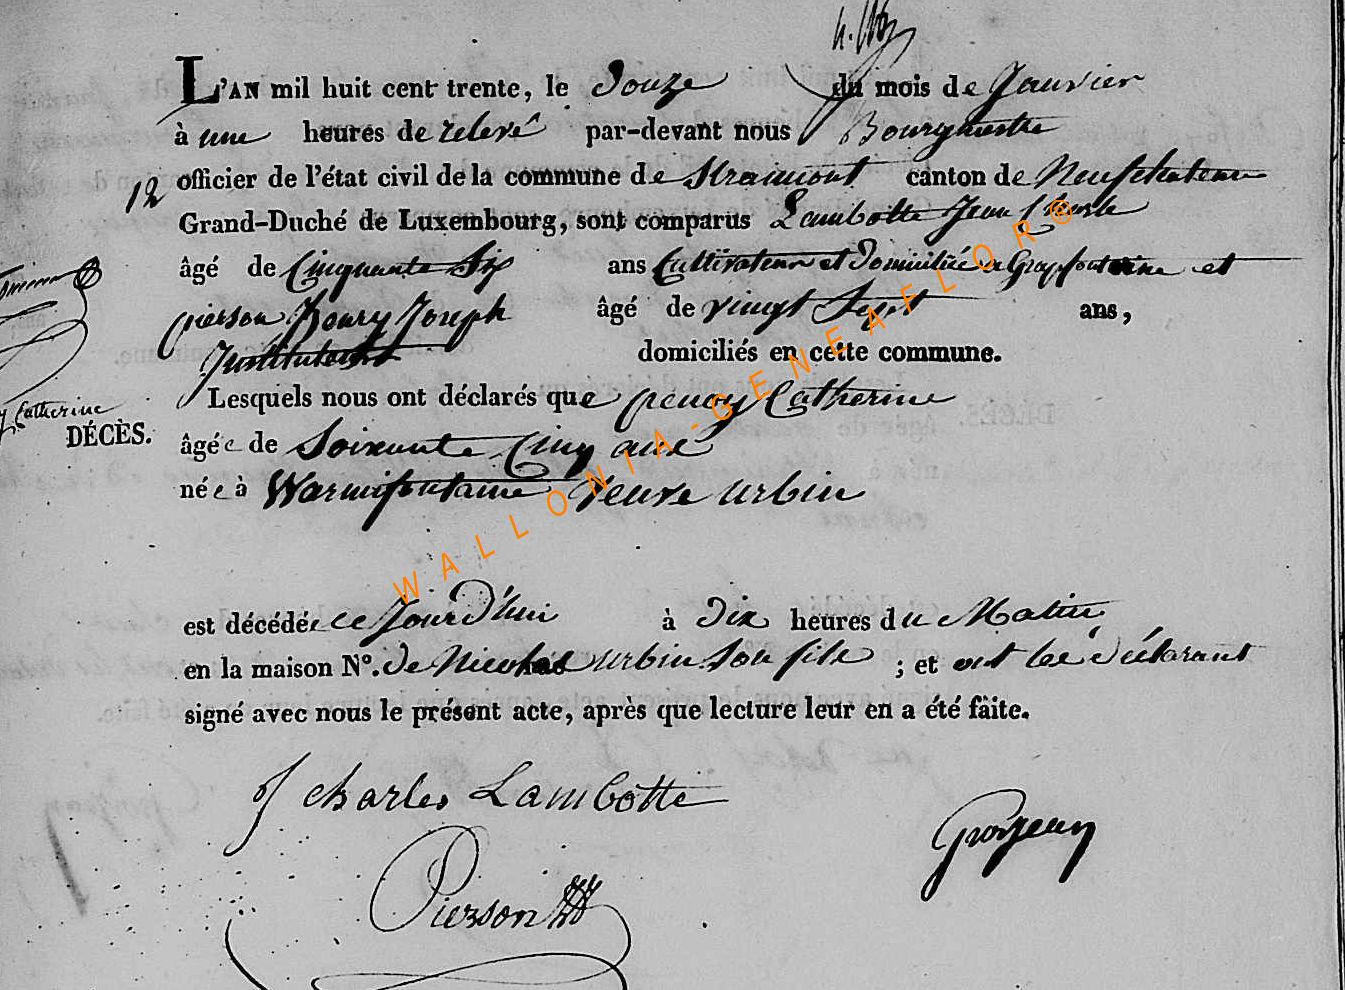 L'AN mil huit cent trente, le Douze du mois de Janvier
à une heures de relevé par-devant nous Bourgmestre
12
officier de l'état civil de la commune de Straimont canton de Neufchateau
Grand-Duché de Luxembourg, sont comparus Lambotte Jean Charle
âgé de Cinquante Six ans Cultivateur et Domicilié a Grapfontaine et
pierson Henry Joseph âgé de vingt Sept ans,
Instituteur domiciliés en cette commune.
Lesquels nous ont déclarés que penoy Catherine
Catherine
DÉCÈS.
âgée de Soixante Cinq ans
née à Warmifontaine veuve urbin
est décédée ce Jourd'hui à Dix heures du Matin
en la maison N°. de Nicolas urbin Son fils ; et ont les déclarant
signé avec nous le présent acte, après que lecture leur en a été faite.
J charles Lambotte
Grosjean
Pierson
WALLONIA-GENEAFLOR®